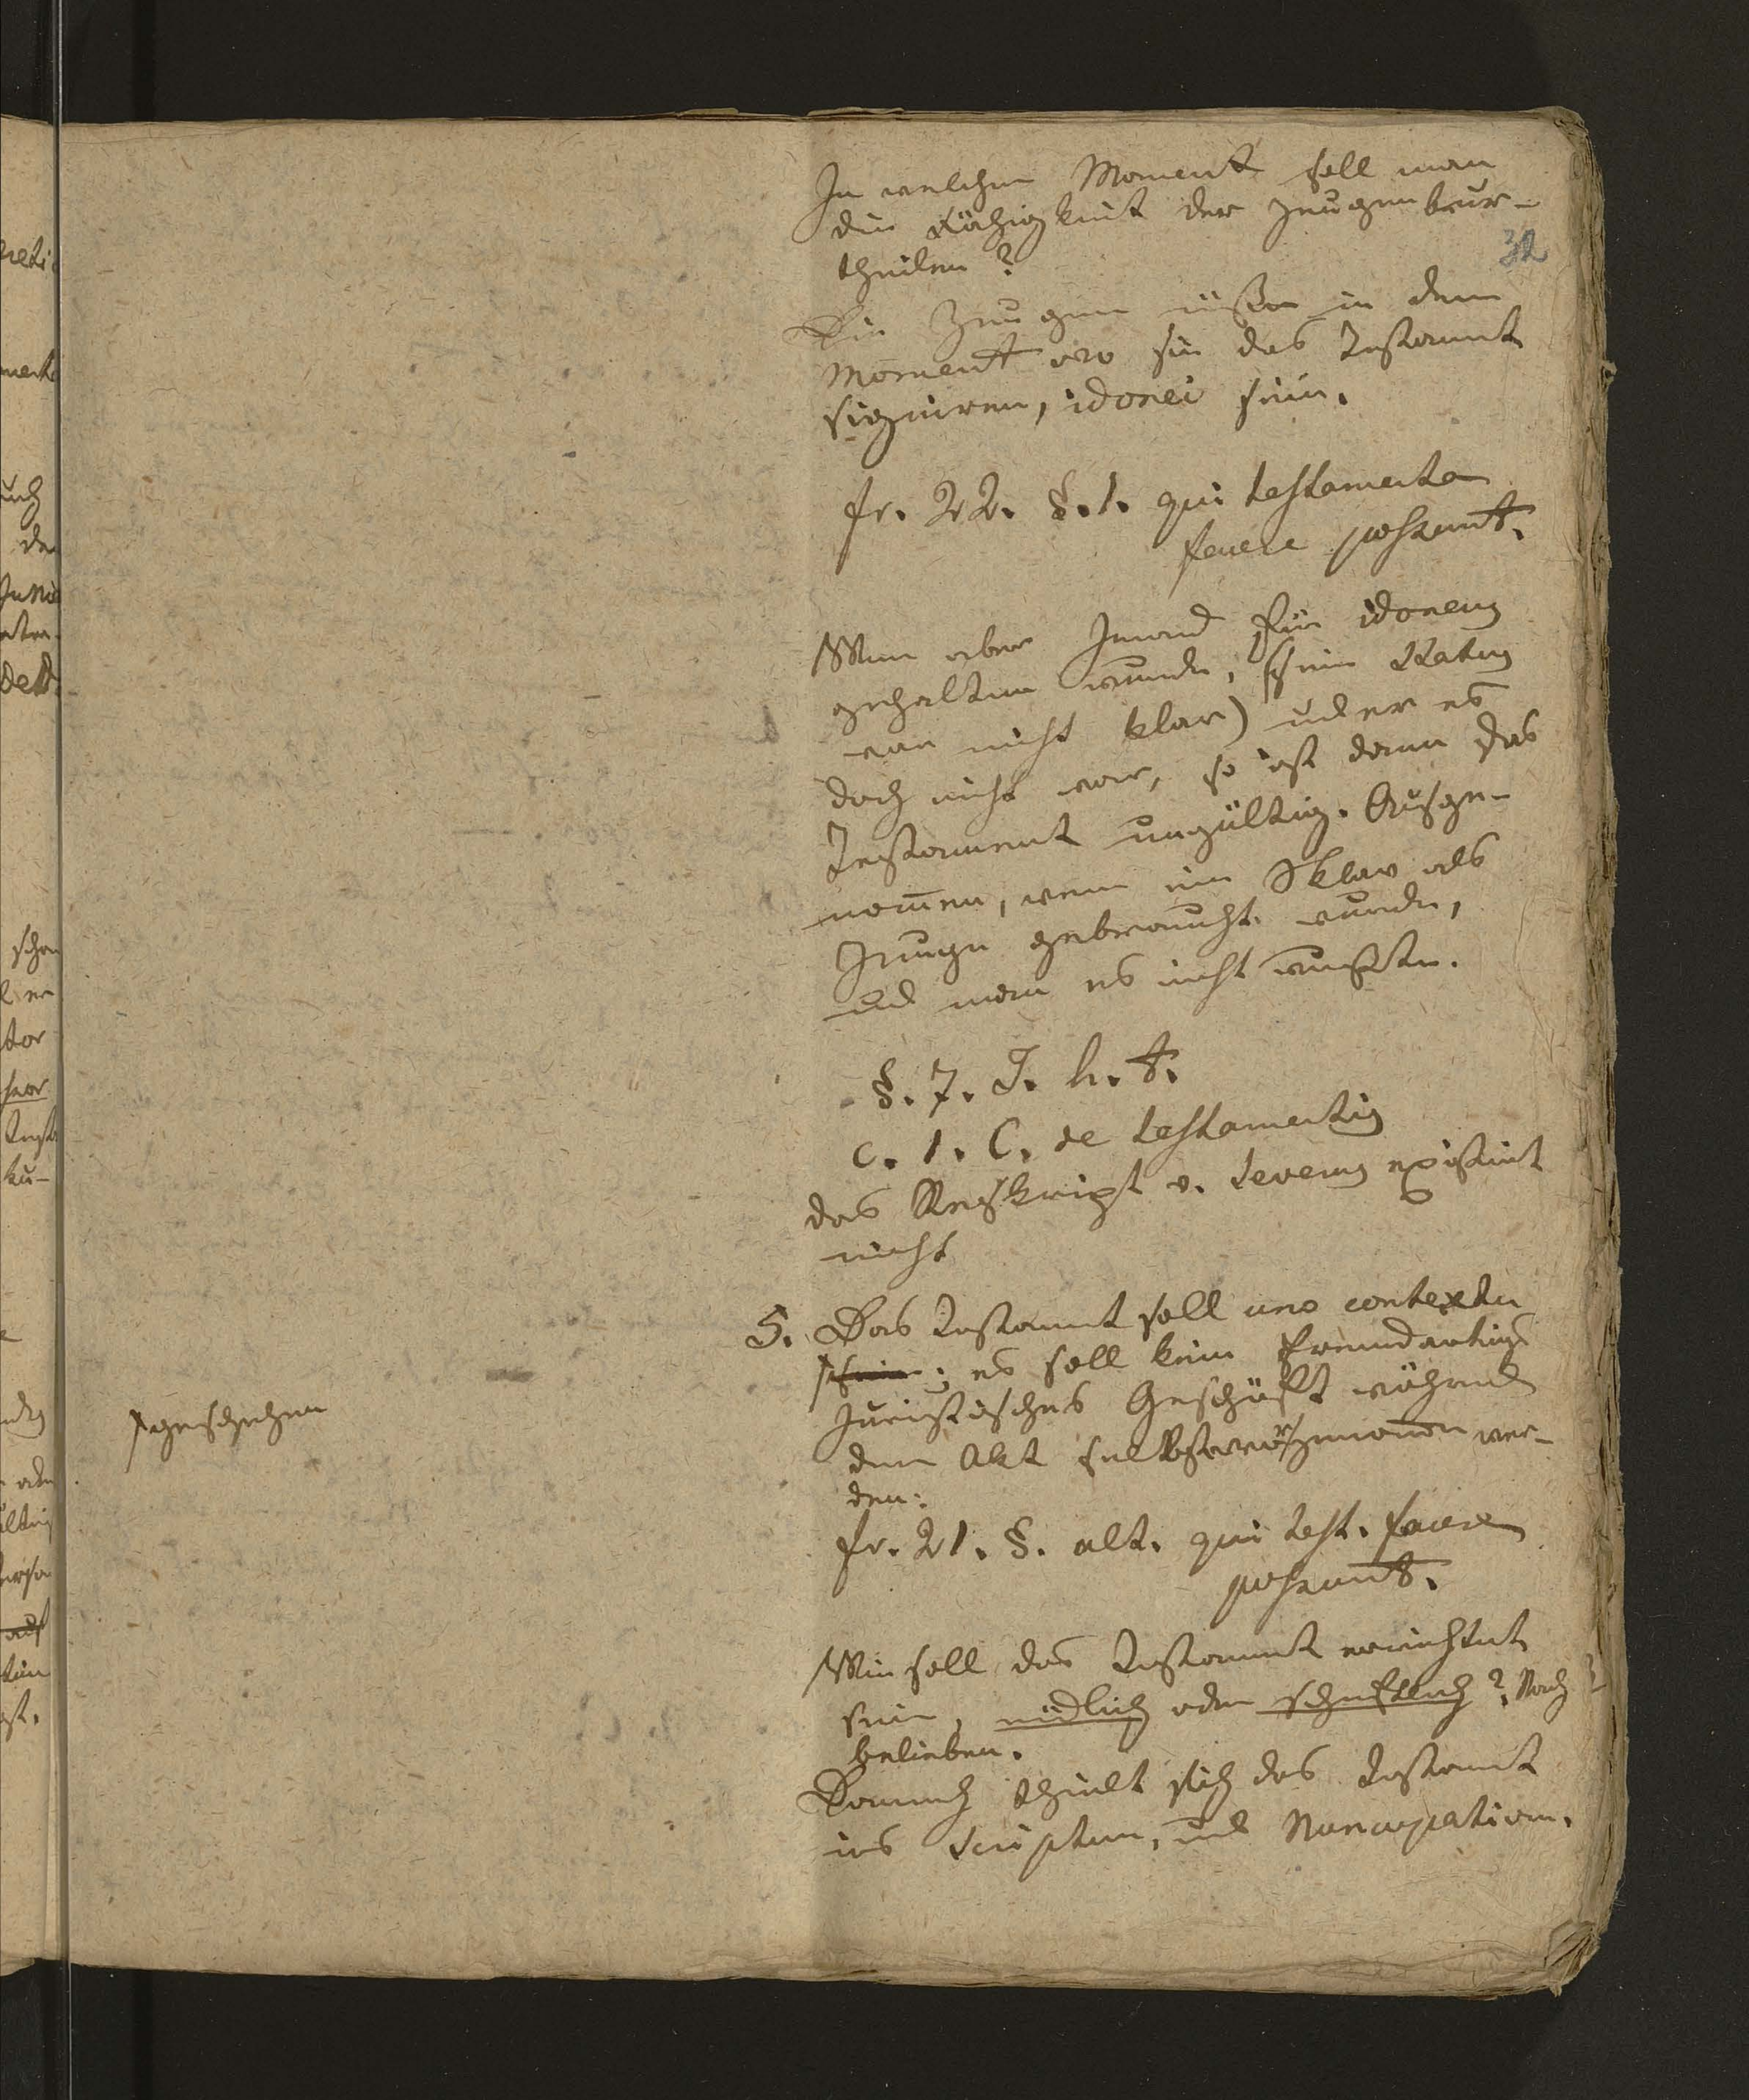 In welchem Moment soll man
die Fähigkeit der Zeugen beur-
theilen?
32
Die Zeugen müßen in dem
Moment wo sie das Testament
signiren, idonei sein.
fr. 22. §. 1. qui testamenta
facere possunt.
Wenn aber Jemand für idoneus
gehalten wurde, (sein Status
war nicht klar) und er es
doch nicht war, so ist dann das
Testament ungültig. Ausge-
nom̄en, wenn ein Sklav als
Zeuge gebraucht wurde,
und man es nicht wusste.
§. 7. J. h. t.
c. 1. C. de testamentis
das Reskript v. Severus existirt
nicht
5. Das Testament soll uno contextu
sein; es soll kein fremdartiges
juristisches Geschäft während
dem Akt vorgenom̄en wer-
den:
geschehen
fr. 21. §. ult. qui test. facere
possunt.
Wie soll das Testament errichtet
sein, mündlich oder schriftlich? Nach
belieben.
Darnach theilt sich das Testament
ins Scriptum, und Nuncupativum.